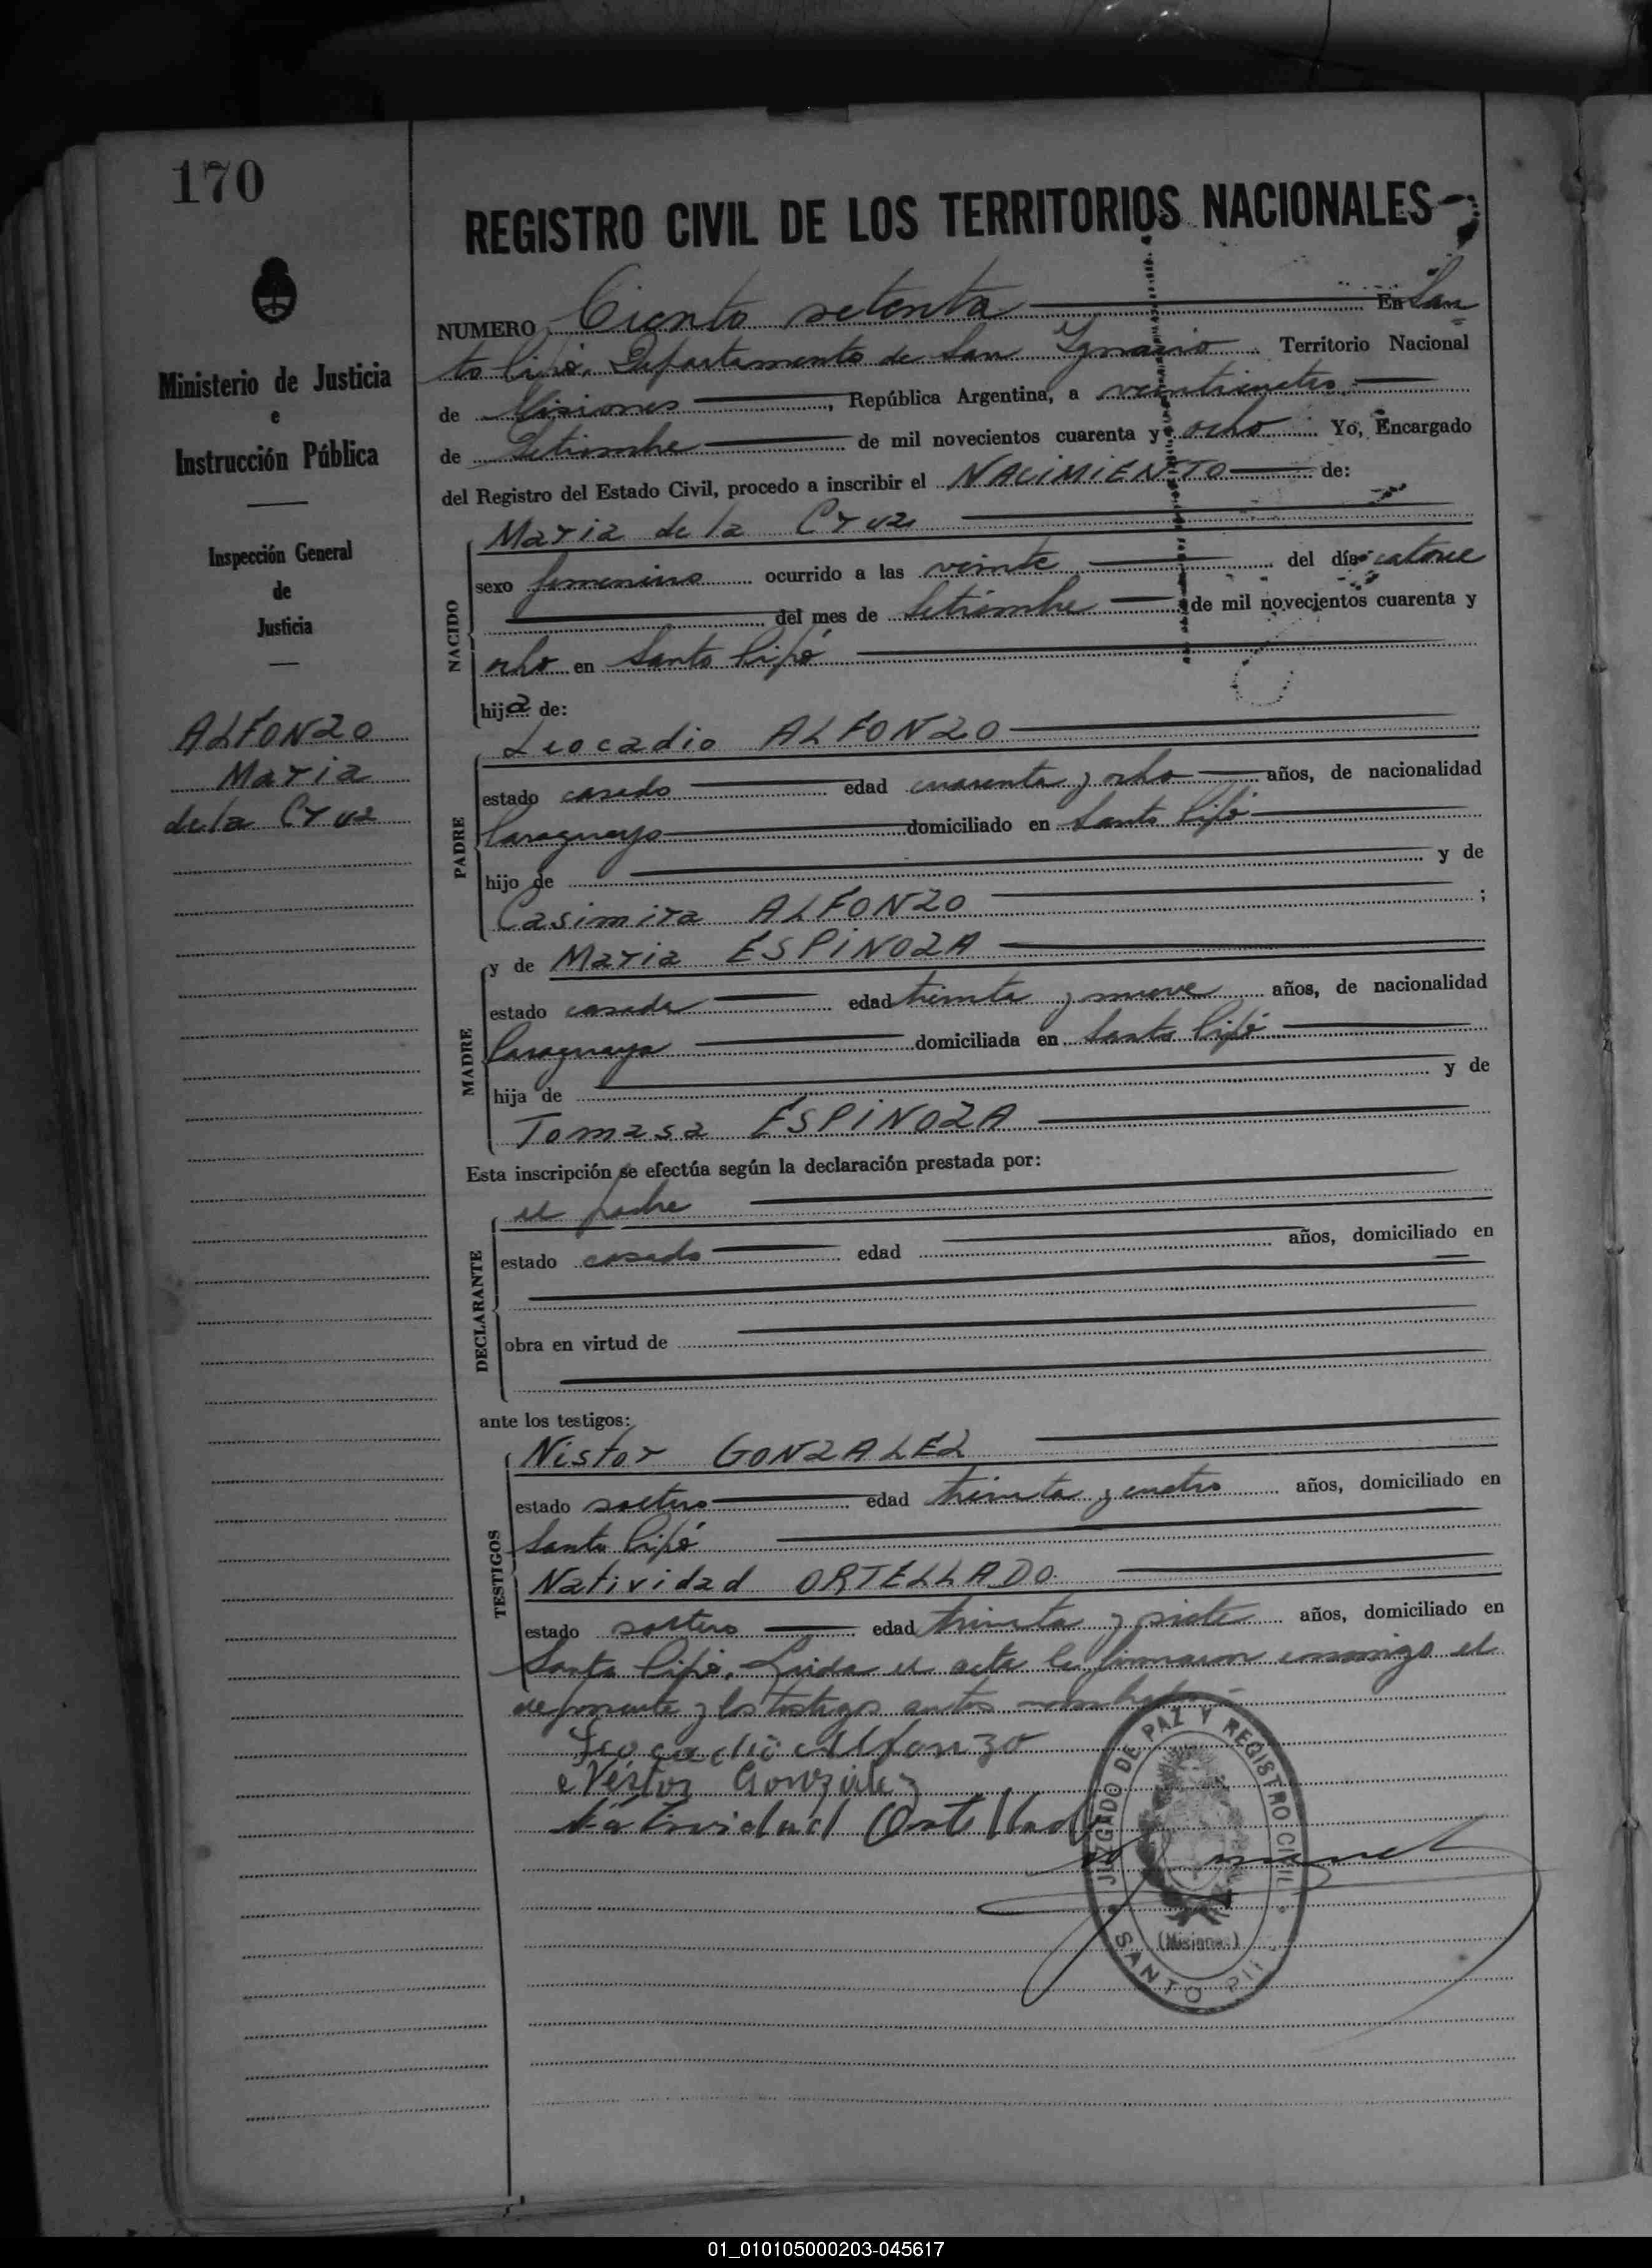 170
REGISTRO CIVIL DE LOS TERRITORIOS NACIONALES
Ministerio de Justicia
e
Instrucción Pública
Inspección General
de
Justicia
ALFONZO
Maria
de la Cruz
NUMERO Ciento setenta En San
to Pipó, Departamento de San Ignacio Territorio Nacional
de Misiones, República Argentina, a veinticuatro
de Setiembre de mil novecientos cuarenta y ocho Yo, Encargado
del Registro del Estado Civil, procedo a inscribir el NACIMIENTO de:
NACIDO
Maria de la Cruz
sexo femenino ocurrido a las veinte del día catorce
del mes de Setiembre de mil novecientos cuarenta y
ocho en Santo Pipó
hija de:
PADRE
Leocadio ALFONZO
estado casado edad cuarenta y ocho años, de nacionalidad
Paraguayo domiciliado en Santo Pipó
hijo de y de
Casimira ALFONZO ;
MADRE
y de Maria ESPINOZA
estado casada edad treinta y nueve años, de nacionalidad
Paraguaya domiciliada en Santo Pipó
hija de y de
Tomasa ESPINOZA
Esta inscripción se efectúa según la declaración prestada por:
DECLARANTE
el padre
estado casado edad años, domiciliado en
obra en virtud de
ante los testigos:
TESTIGOS
Nistor GONZALEZ
estado soltero edad treinta y cuatro años, domiciliado en
Santo Pipó
Natividad ORTELLADO
estado soltero edad treinta y siete años, domiciliado en
Santo Pipó. Leida el acta la firmaron conmigo el
deponente y los testigos antes nombrados
Leocadio Alfonzo
Néstor González
Natividad Ortellado
JUZGADO DE PAZ Y REGISTRO CIVIL
(Misiones)
SANTO
01_010105000203-045617